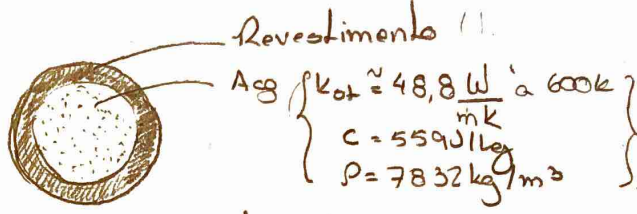 Revestimento
Aço { k ≅ 48,8 W/mK à 600K
C = 559 J/kg
ρ = 7832 kg/m³ }